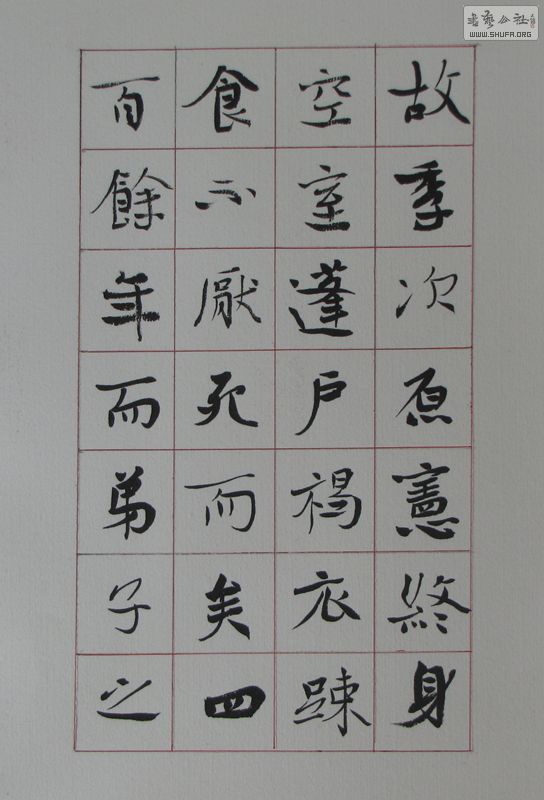 故季次原憲終身
空室蓬户褐衣踈
食不厭死而矣四
百餘年而弟子之
书艺公社
WWW.SHUFA.ORG